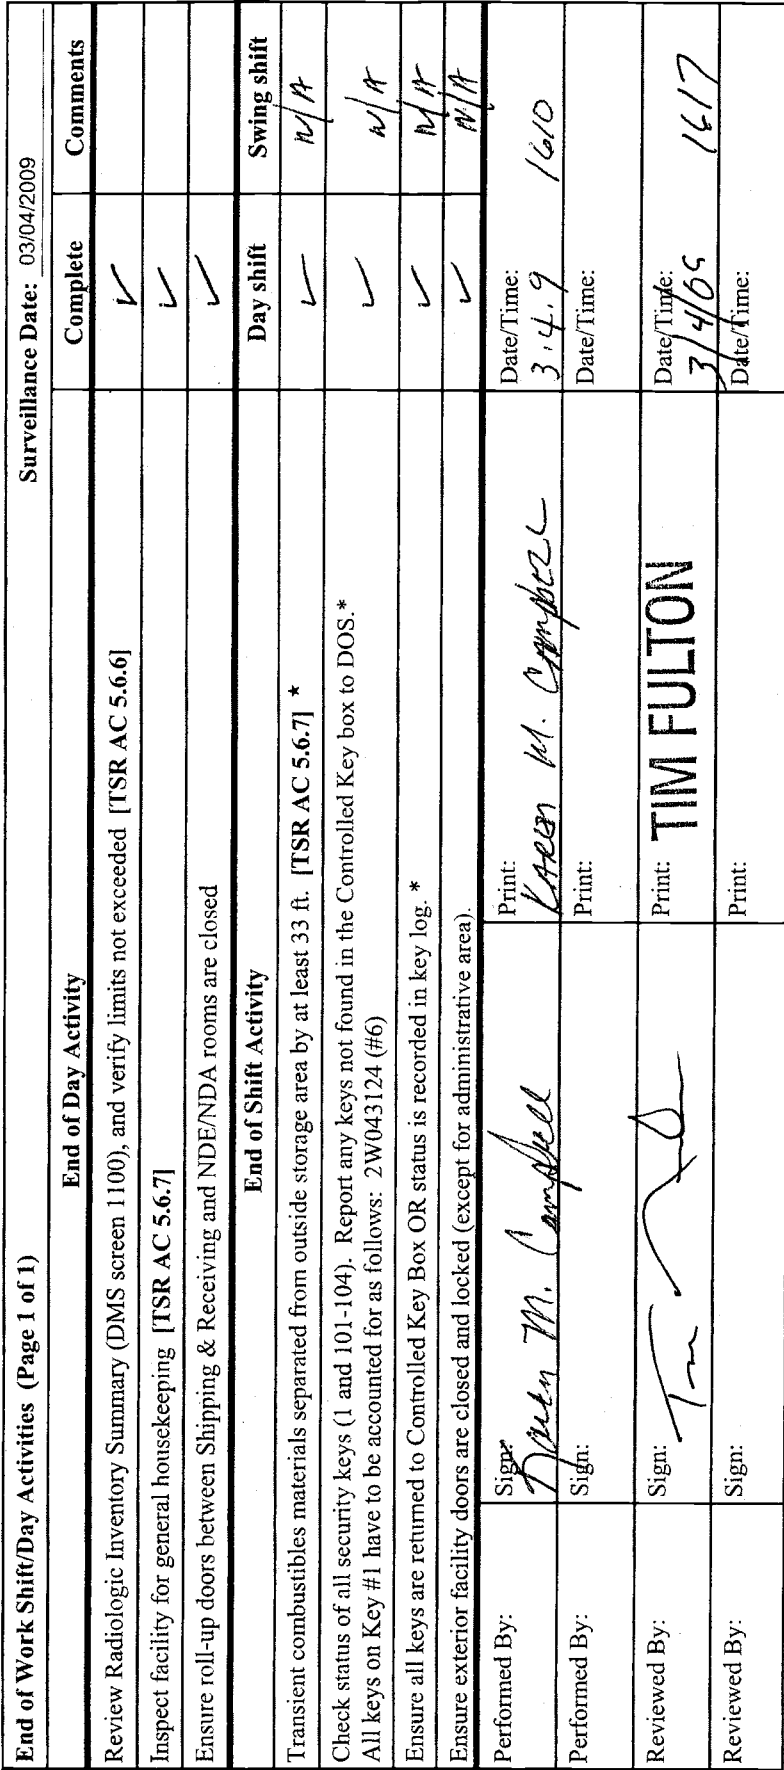 End of Work Shift/Day Activities (Page 1 of 1) Surveillance Date: 03/04/2009
End of Day Activity Complete Comments
Review Radiologic Inventory Summary (DMS screen 1100), and verify limits not exceeded [TSR AC 5.6.6] ✓
Inspect facility for general housekeeping [TSR AC 5.6.7] ✓
Ensure roll-up doors between Shipping & Receiving and NDE/NDA rooms are closed ✓
End of Shift Activity Day shift Swing shift
Transient combustibles materials separated from outside storage area by at least 33 ft. [TSR AC 5.6.7] * ✓ N/A
Check status of all security keys (1 and 101-104). Report any keys not found in the Controlled Key box to DOS.* ✓ N/A
All keys on Key #1 have to be accounted for as follows: 2W043124 (#6)
Ensure all keys are returned to Controlled Key Box OR status is recorded in key log. * ✓ N/A
Ensure exterior facility doors are closed and locked (except for administrative area). ✓ N/A
Performed By: Sign: Karen M. Campbell Print: KAREN M. CAMPBELL Date/Time: 3.4.9 1610
Performed By: Sign: Print: Date/Time:
Reviewed By: Sign: Print: TIM FULTON Date/Time: 3/4/09 1617
Reviewed By: Sign: Print: Date/Time: